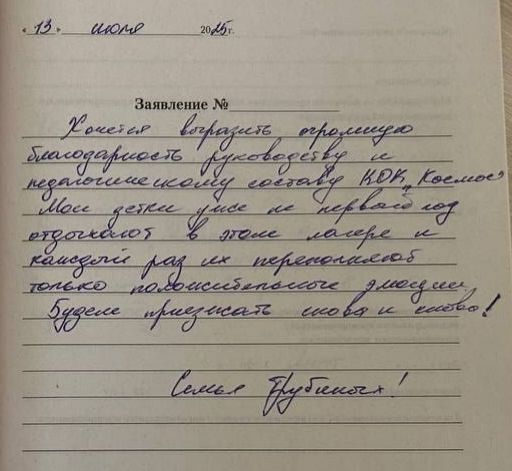 « 13 » июля 2025 г.
Заявление №
Хочется выразить огромную
благодарность руководству и
педагогическому составу КОК „Космос"
Мои детки уже не первый год
отдыхают в этом лагере и
каждый раз их переполняют
только положительные эмоции
Будем приезжать снова и снова!
Семья Трубиных!